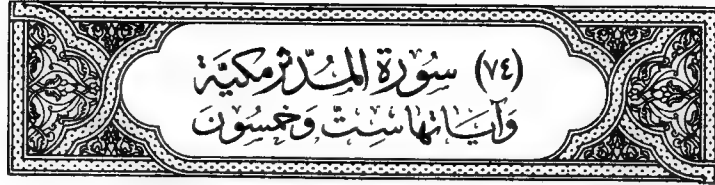 (٧٤) سُورَة المُدَّثِّر مَكيَّة
وَآيَاتهَا سِتٌّ وَخَمسُونَ